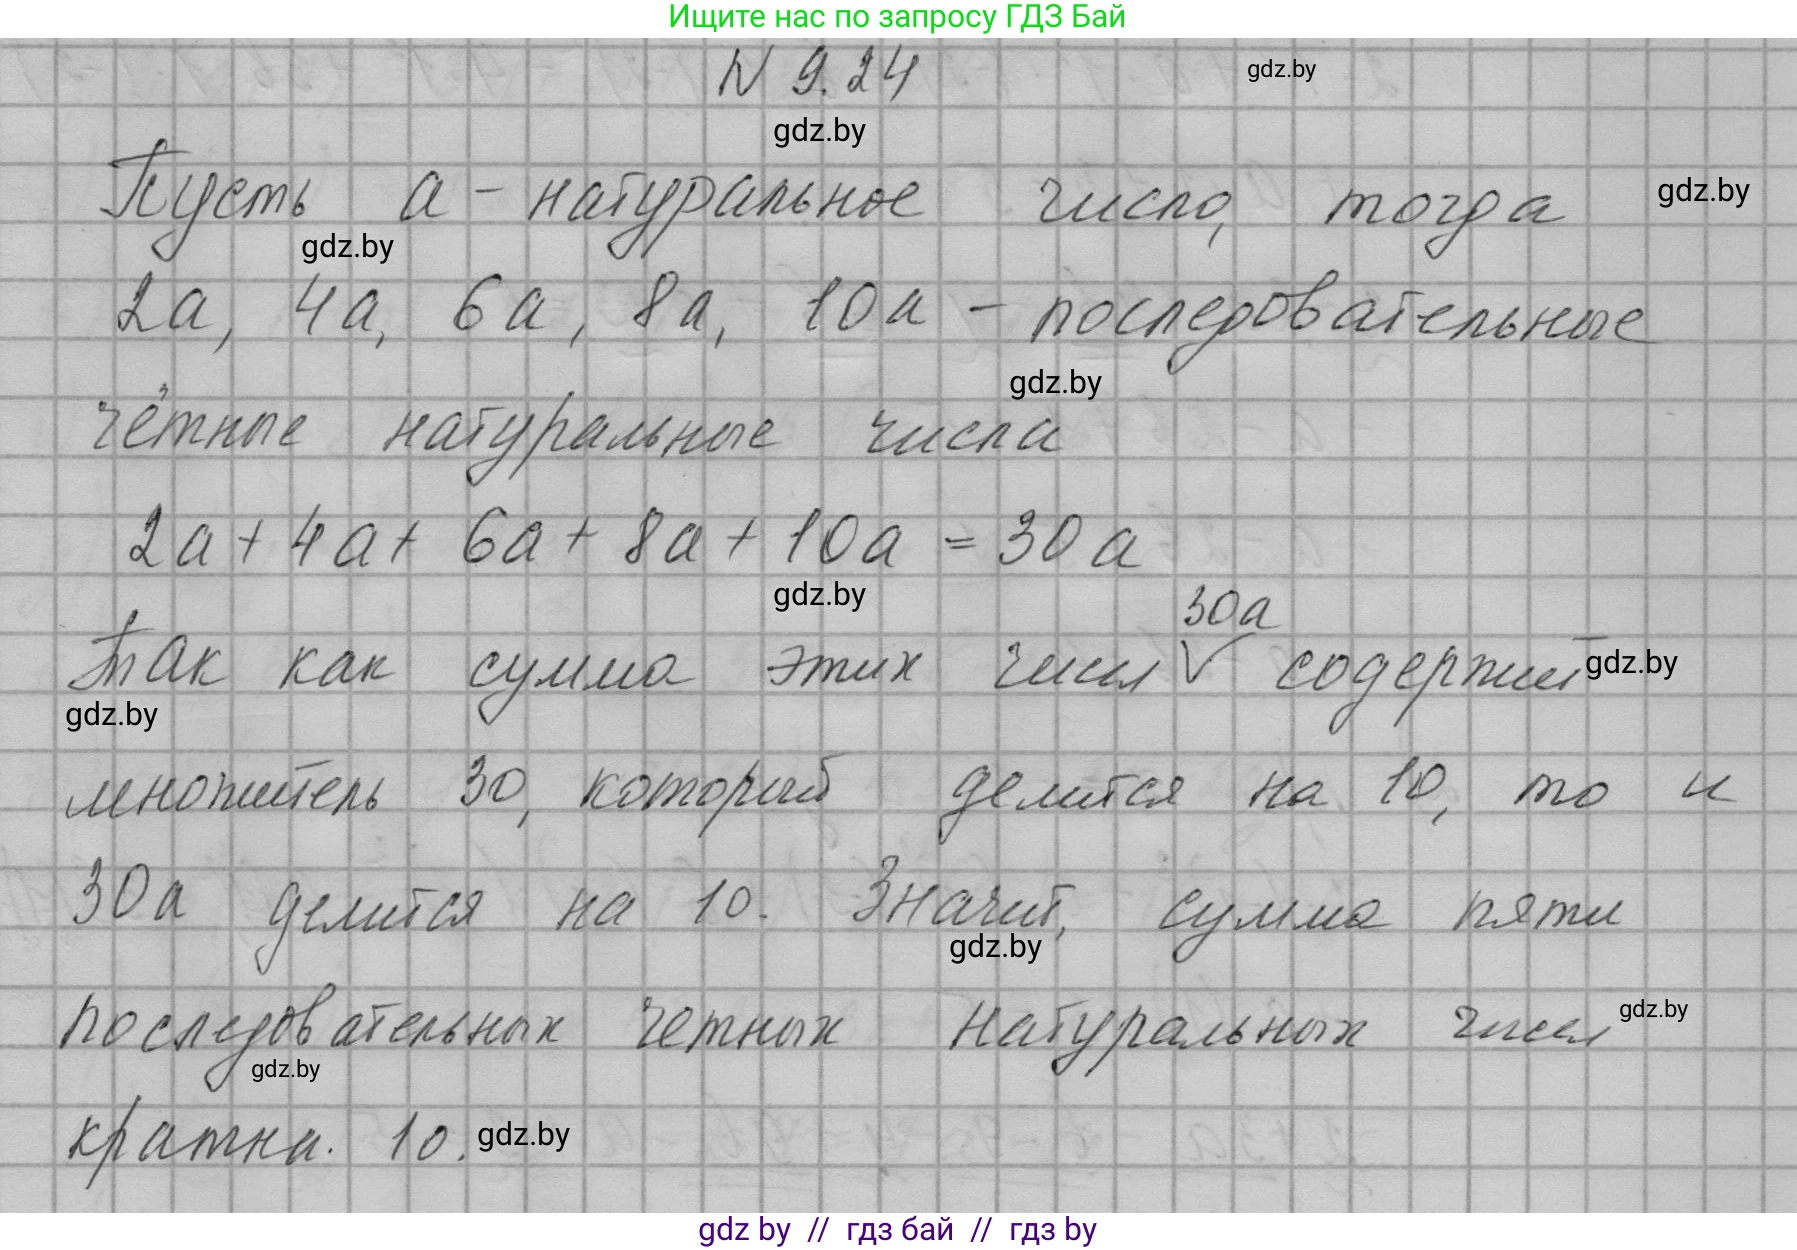 Ищите нас по запросу ГДЗ Бай
N 9.24
gdz.by
gdz.by
Пусть а - натуральное число, тогда
gdz.by
gdz.by
2а, 4а, 6а, 8а, 10а - последовательные
gdz.by
чётные натуральные числа
2а + 4а + 6а + 8а + 10а = 30а
gdz.by
30а
Так как сумма этих чисел √ содержит
gdz.by
gdz.by
множитель 30, который делится на 10, то и
30а делится на 10. Значит, сумма пяти
gdz.by
последовательных четных натуральных чисел
gdz.by
gdz.by
кратна. 10.
gdz.by
gdz by // гдз бай // гдз by